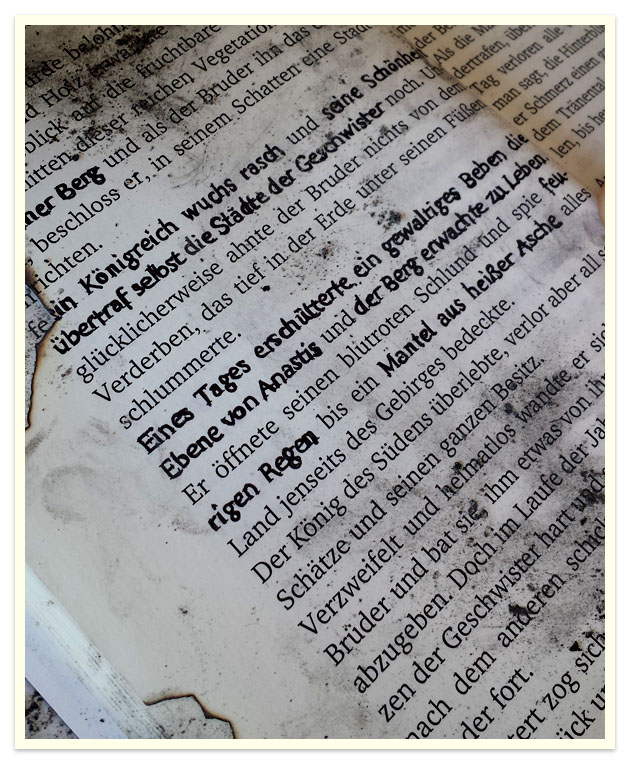 und Holz
blick auf die fruchtbare
mitten dieser reichen Vegetation
ner Berg und als der Bruder ihn das
beschloss er, in seinem Schatten eine Stadt
richten.
ein Königreich wuchs rasch und seine Schönhe
übertraf selbst die Städte der Geschwister noch. U
glücklicherweise ahnte der Bruder nichts von dem
Verderben, das tief in der Erde unter seinen Füßen
schlummerte.
Eines Tages erschütterte ein gewaltiges Beben die
Ebene von Anastis und der Berg erwachte zu Leben.
Er öffnete seinen blutroten Schlund und spie feu-
rigen Regen bis ein Mantel aus heißer Asche alles
Land jenseits des Gebirges bedeckte.
Der König des Südens überlebte, verlor aber all s
Schätze und seinen ganzen Besitz.
Verzweifelt und heimatlos wandte er sic
Brüder und bat sie, ihm etwas von ihr
abzugeben. Doch im Laufe der Jah
zen der Geschwister hart und
nach dem anderen schick
der fort.
tert zog sich
ück u
der Be
Als die Ma
dertrafen, übe
Tag verloren alle
man sagt, die Hinterbl
er Schmerz einen
dem Tränental
len, bis he